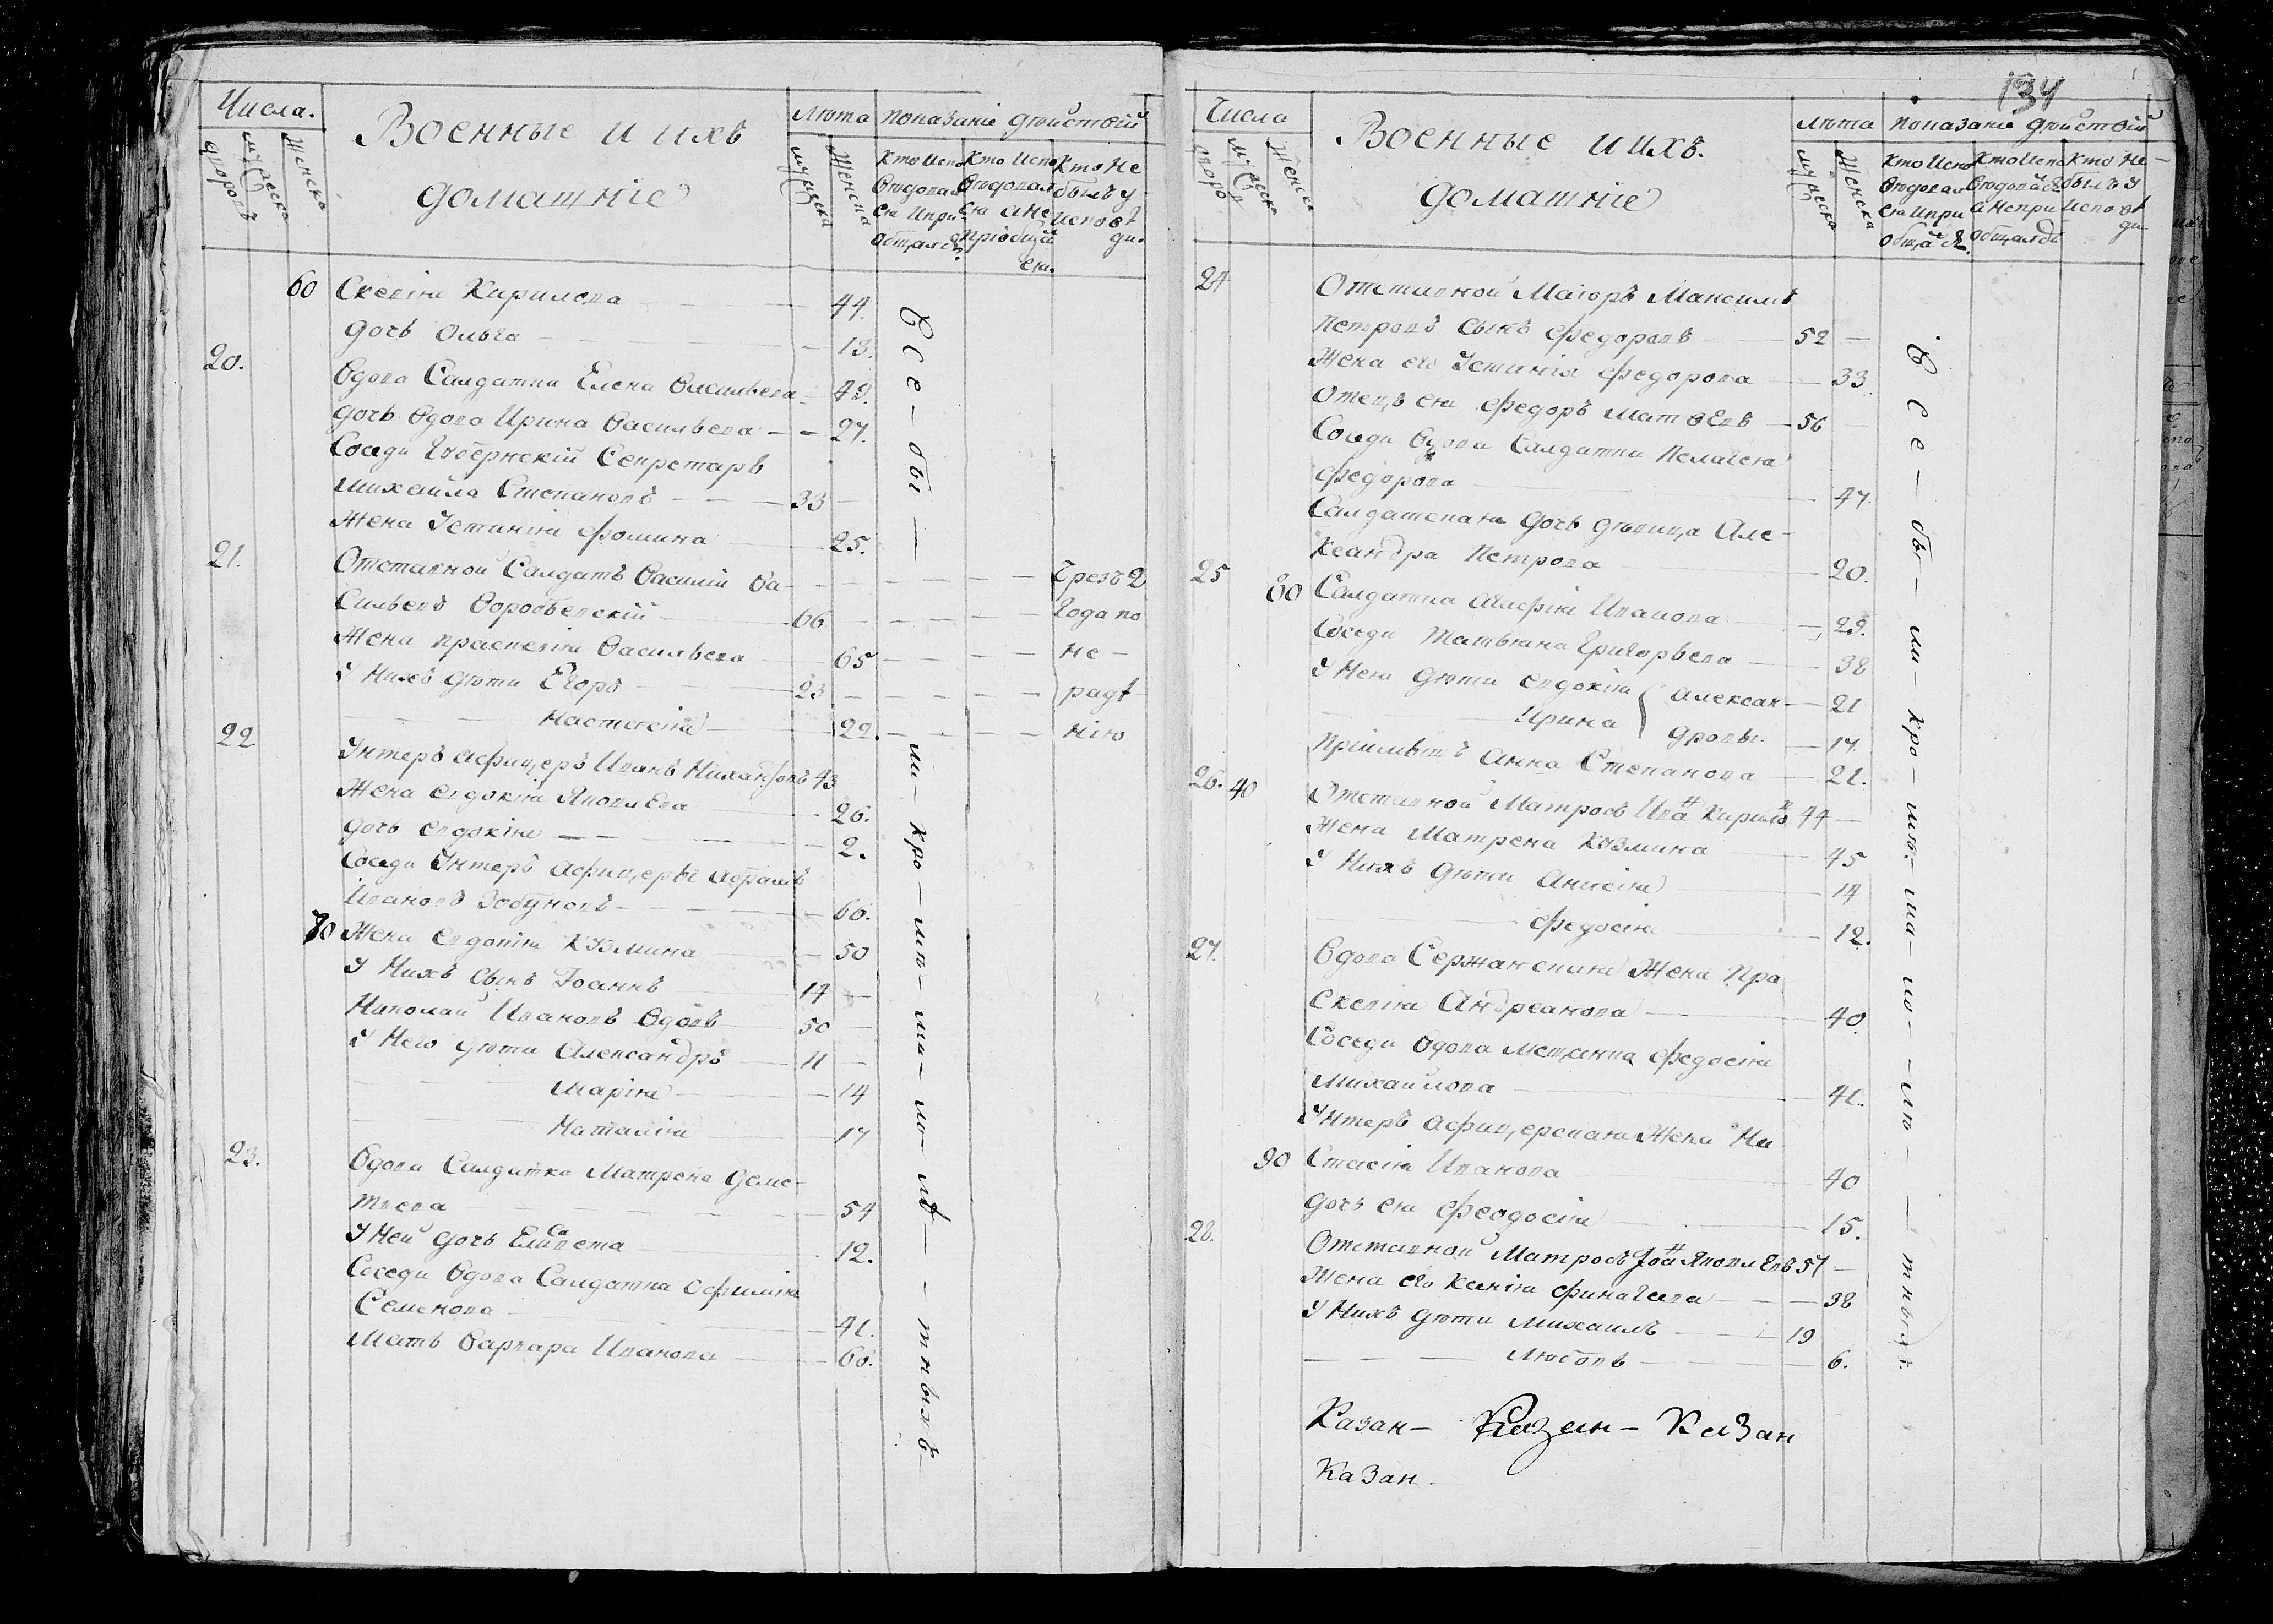 Числа.
Военные и ихъ
домашніе
Люта
показаніе дюиствіи
дворовъ
мужеска
Женска
мужеска
Женска
Кто испо
ведовал
ся и при
общался
Кто испо
ведовал
ся а не
пріобщил
ся.
Кто не
былъ у
исповѣ
ди.
60 Скевія Кирилова 44.
дочь Ольга 13.
20.
Вдова Салдатка Елена Васильева 49.
дочь Вдова Ирина Васильева 27.
Соседи Губернскій Секретарь
Михаила Степановъ 33
Жена Устинія Фомина 25.
21.
Отставной Салдатъ Василіи Ва- Чрезъ 2
сильевъ Воробьевскій 66 года по
Жена Прасковія Васильева 65 не
У Нихъ дюти Егоръ 23 радѣ
Настасія 22. нію
22
Унтеръ Афицеръ Иванъ Никаноровъ 43
Жена Евдокія Яковлева 26.
дочь Евдокія 2.
Соседи Унтеръ Афицеръ Абрамъ
Ивановъ Зобуновъ 60.
70 Жена Евдокія Кузмина 50
У Нихъ Сынъ Іоаннъ 14
Николай Ивановъ Вдовъ 50
У Него дюти Александръ 11
Марія 14
Наталія 17
23.
Вдова Салдатка Матрена Деме-
тіева 54
У Ней дочь Елисавета 12.
Соседи Вдова Салдатка Офимія
Семенова 41.
Мать Варвара Иванова 60.
Все - бы - ли - кро - мю - ма - ло - лѣ - тныхъ
134
Числа
Военные и ихъ.
домашніе
Люта
показаніе дюиствіи
дворо
мужеска
Женска
мужеска
Женска
Кто испо
ведовал
ся и при
общался.
Кто испо
ведовался
а не при
общалсь
Кто не-
былъ у
исповѣ
ди
24
Отставной Маіоръ Максимъ
Петровъ сынъ Федоровъ 52
Жена его Устинія Федорова 33
Отецъ ея Федоръ Матвеевъ 56
Соседи Вдова Салдатка Пелагея
Федорова 47.
Салдатская дочь дювица Але-
ксандра Петрова 20.
25
80 Салдатка Агафія Иванова 29.
Соседи Татьяна Григорьева 38
У Нея дюти Евдокія Алексан- 21
Ирина дровы. 17.
Пріимышъ Анна Степанова 21.
26. 40
Отставной Матросъ Иван Кирило 44
Жена Матрена Кузмина 45
У Нихъ дюти Анисія 14
Федосія 12.
27.
Вдова Сержанскина Жена Пра
скевія Андреанова 40.
Соседи Вдова Мещанка Федосія
Михаилова 41.
Унтеръ Афицерская Жена На
90 стасія Иванова 40
дочь ея Феодосія 15.
28.
Отставной Матросъ Іоан Яковлевъ 57
Жена его Ксенія Финагеева 38
У Нихъ дюти Михаилъ 19
Любовь 6.
Все - бы - ли - кро - мю - ма - ло - лю - тныхъ.
Казан - Казан - Казан
Казан